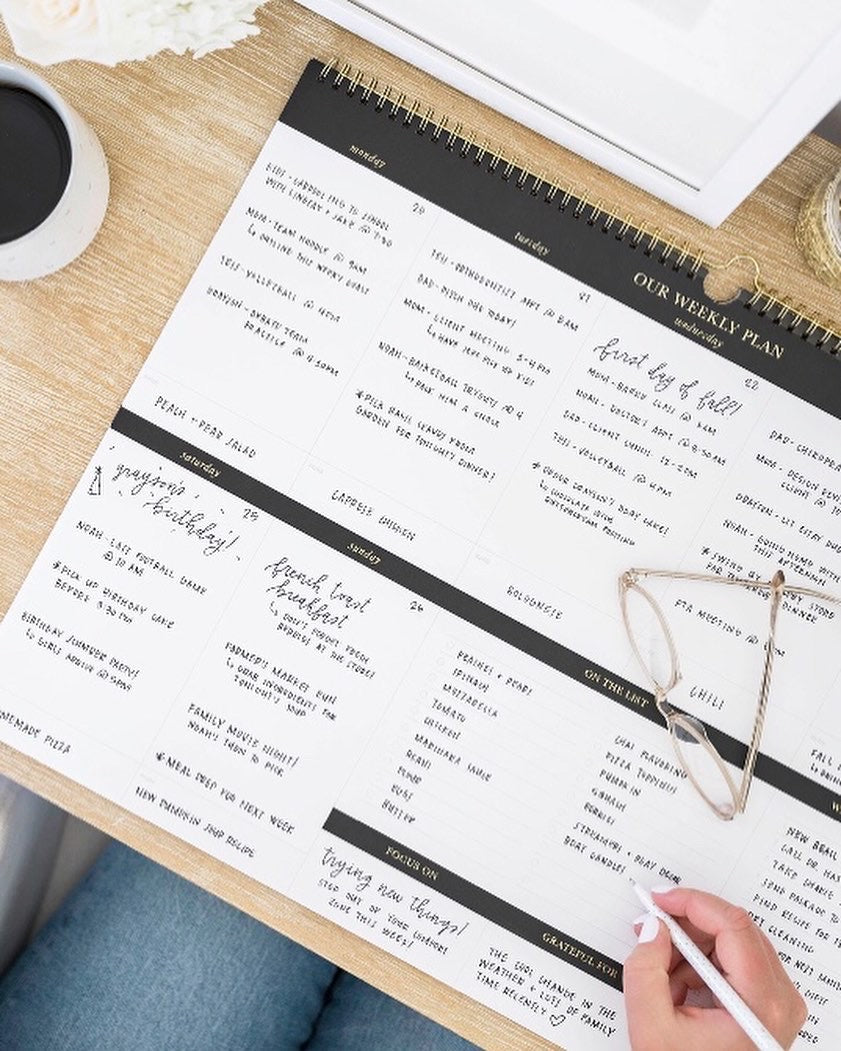 OUR WEEKLY PLAN
monday
20
KIDS - CARPOOLING TO SCHOOL
WITH LINDSAY + JAKE @ 7:30
MOM - TEAM HUDDLE @ 9AM
↳ ONLINE THIS WEEK
TESS - VOLLEYBALL @ 4PM
GRAYSON - DEBATE TEAM
PRACTICE @ 4:30PM
PEACH + PEAR SALAD
tuesday
21
TESS - ORTHODONTIST APPT @ 8AM
DAD - PITCH DUE TODAY!
MOM - CLIENT MEETING 3-4PM
↳ HAVE PICK UP KIDS
NOAH - BASKETBALL TRYOUTS @ 4
↳ PACK HIM A SNACK
* PICK BASIL LEAVES FROM
GARDEN FOR TONIGHT'S DINNER!
CAPRESE CHICKEN
wednesday
22
first day of fall!
MOM - BARRE CLASS @ 6AM
NOAH - DOCTORS APPT @ 8:30AM
DAD - CLIENT LUNCH 12-2PM
TESS - VOLLEYBALL @ 4PM
* ORDER GRAYSON'S BDAY CAKE!
↳ CHOCOLATE WITH
BUTTERCREAM FROSTING
BOLOGNESE
DAD - CHIROPRA
MOM - DESIGN REVI
CLIENT @ 10
GRAYSON -
NOAH - GOING HOME WITH
THIS AFTERNOON
* SWING BY STORE
FOR DINNER
PTA MEETING @ 6PM
CHILI
FALL
saturday
25
grayson's
birthday!
NOAH - LAST FOOTBALL GAME
@ 10 AM
* PICK UP BIRTHDAY CAKE
BEFORE 3:30 PM
BIRTHDAY SLUMBER PARTY!
↳ GIRLS ARRIVE @ 5PM
HOMEMADE PIZZA
sunday
26
french toast
breakfast
↳ DON'T FORGET FRESH
BERRIES AT THE STORE!
FARMER'S MARKET RUN
↳ GRAB INGREDIENTS FOR
TONIGHT'S SOUP
FAMILY MOVIE NIGHT!
NOAH'S TURN TO PICK
* MEAL PREP FOR NEXT WEEK
NEW PUMPKIN SOUP RECIPE
ON THE LIST
PEACHES + PEARS
SPINACH
MOZZARELLA
TOMATO
CHICKEN
MARINARA SAUCE
BEANS
BUTTER
CHILI
PIZZA TOPPINGS
PUMPKIN
BERRIES
STREAMERS + BDAY DECOR
BDAY CANDLES
NEW
CALL DR.
TAKE
SEND PACKAGE TO
FIND RECIPE FOR
DRY CLEANING
FOCUS ON
trying new things!
STEP OUT OF YOUR COMFORT
ZONE THIS WEEK!
GRATEFUL FOR
THE COOL CHANGE IN THE
WEATHER + LOTS OF FAMILY
TIME RECENTLY ♡